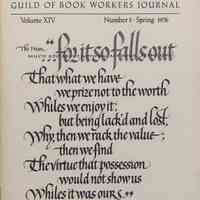 GUILD OF BOOK WORKERS JOURNAL
Volume XIV Number 3 - Spring 1976
“...for it so falls out
That what we have
we prize not to the worth
Whiles we enjoy it;
but being lack'd and lost,
Why, then we rack the value;
then we find
The virtue that possession
would not show us
Whiles it was ours...”